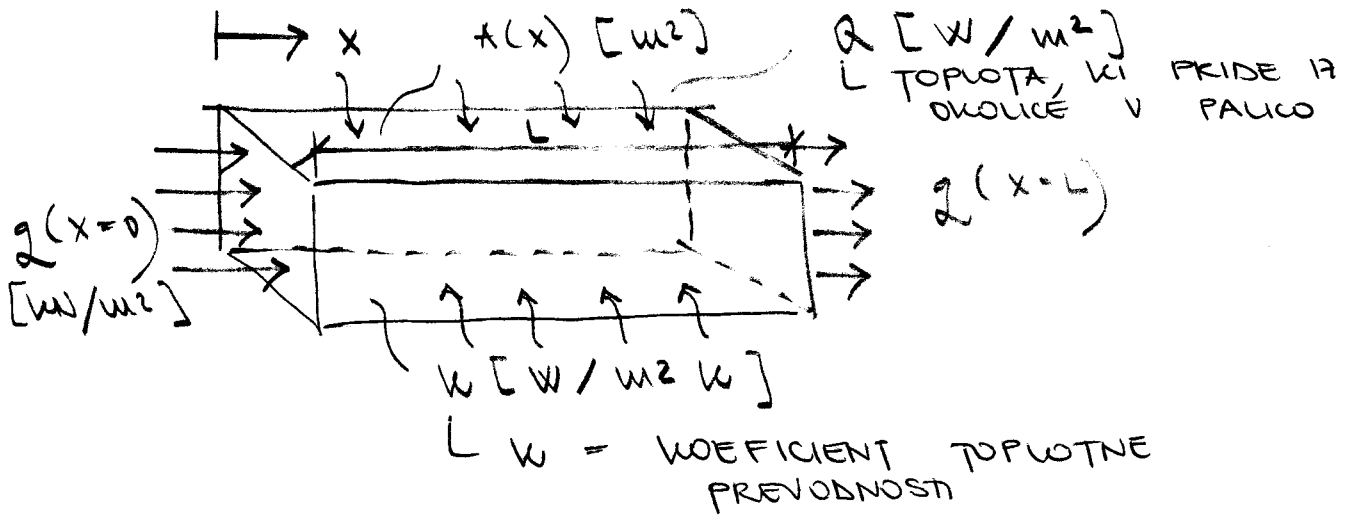 x
A(x) [m²]
Q [W/m²]
L TOPLOTA, KI PRIDE IZ
OKOLICE V PALICO
L
q(x=0)
[kN/m²]
q(x=L)
k [W/m² K]
L k = KOEFICIENT TOPLOTNE
PREVODNOSTI